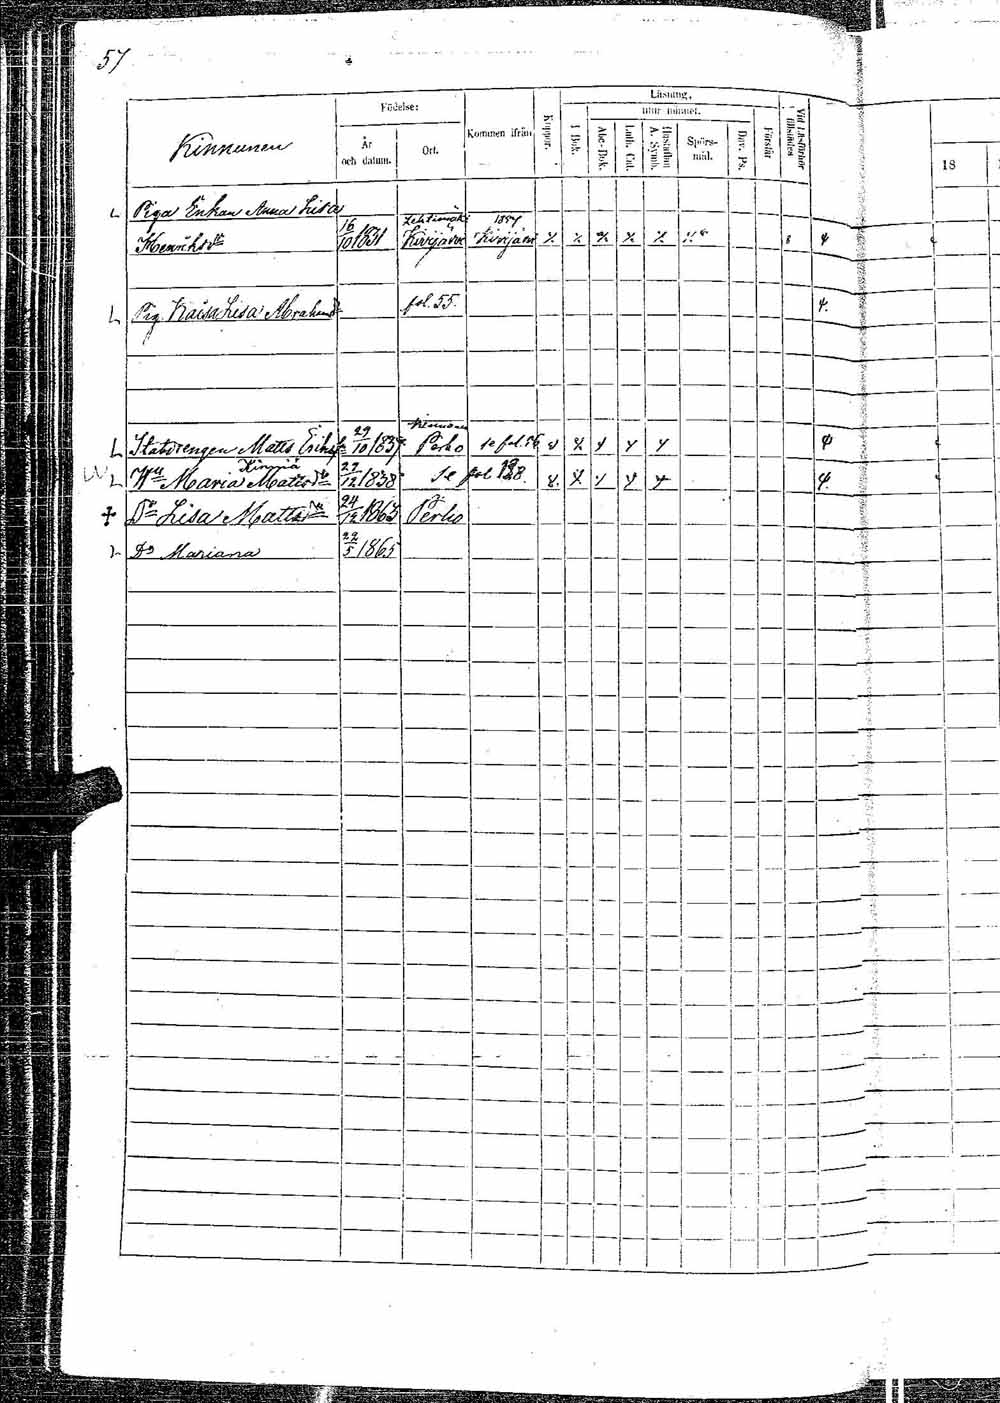 57
Kinnunen
Födelse:
År
och datum.
Ort.
Kommen ifrån
Koppor.
Läsning,
utur minnet.
I Bok.
Abc-Bok.
Luth. Cat.
Hustaflan
A. Symb.
Spörs-
mål.
Dav. Ps.
Förstår
Vid Läsförhör
tillstädes
18
Piga Enkan Anna Lisa
Henriksdr 16/10 1831 Kivijärvi 1857 Kivijärvi
Pig. Kaisa Lisa Abrahamsdr fol. 55.
Statdrengen Matts Eriks 29/10 1837 Perho se fol. 56
Kinniä
Hu Maria Mattsdr 22/12 1838 se fol 128.
Dr Lisa Mattsdr 24/12 1863 Perho
Do Mariana 22/5 1865